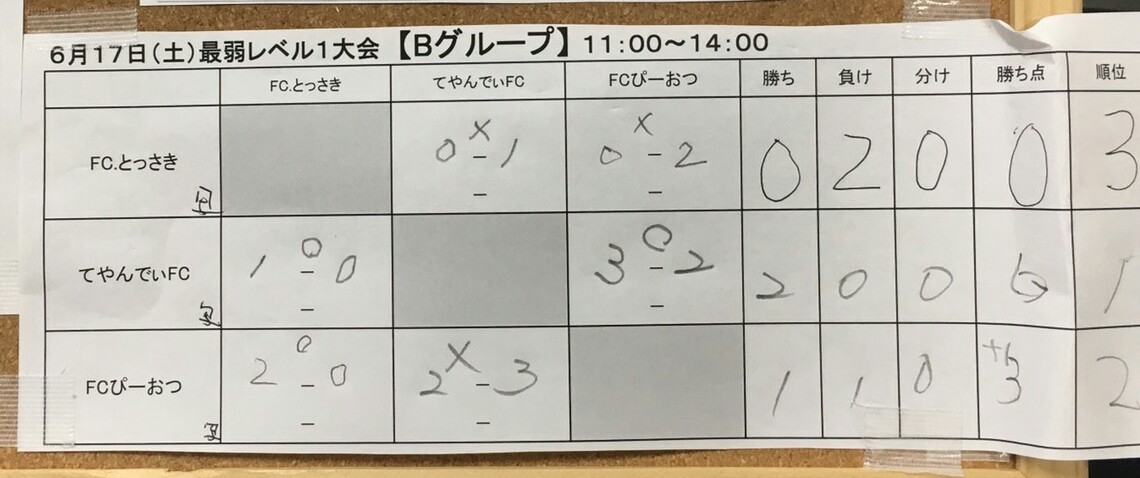 6月17日(土)最弱レベル1大会 【Bグループ】 11:00～14:00
FC.とっさき てやんでぃFC FCぴーおつ 勝ち 負け 分け 勝ち点 順位
× ×
FC.とっさき 0 - 1 0 - 2 0 2 0 0 3
- -
○ ○
てやんでぃFC 1 - 0 3 - 2 2 0 0 6 1
- -
○ ×
FCぴーおつ 2 - 0 2 - 3 1 1 0 3 2
- -